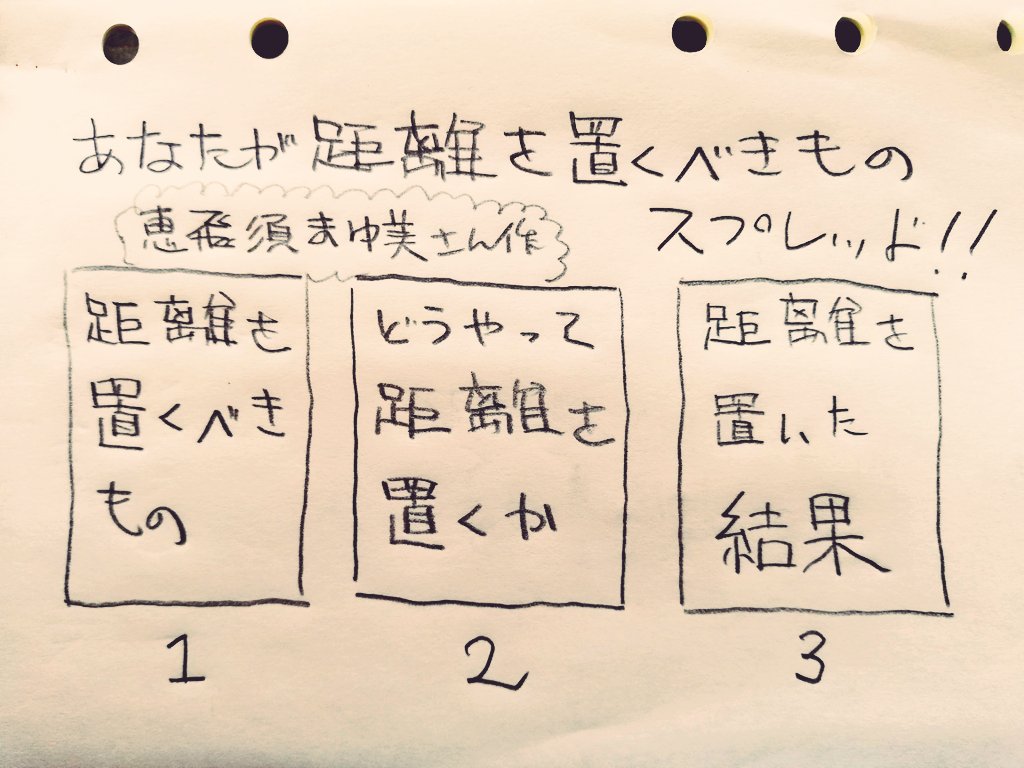 あなたが距離を置くべきもの
恵飛須まゆ美さん作
スプレッド!!
距離を
置くべき
もの
1
どうやって
距離を
置くか
2
距離を
置いた
結果
3